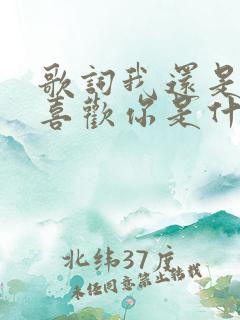 歌詞我還是
喜歡你是什
北纬37度
未经同意禁止转载